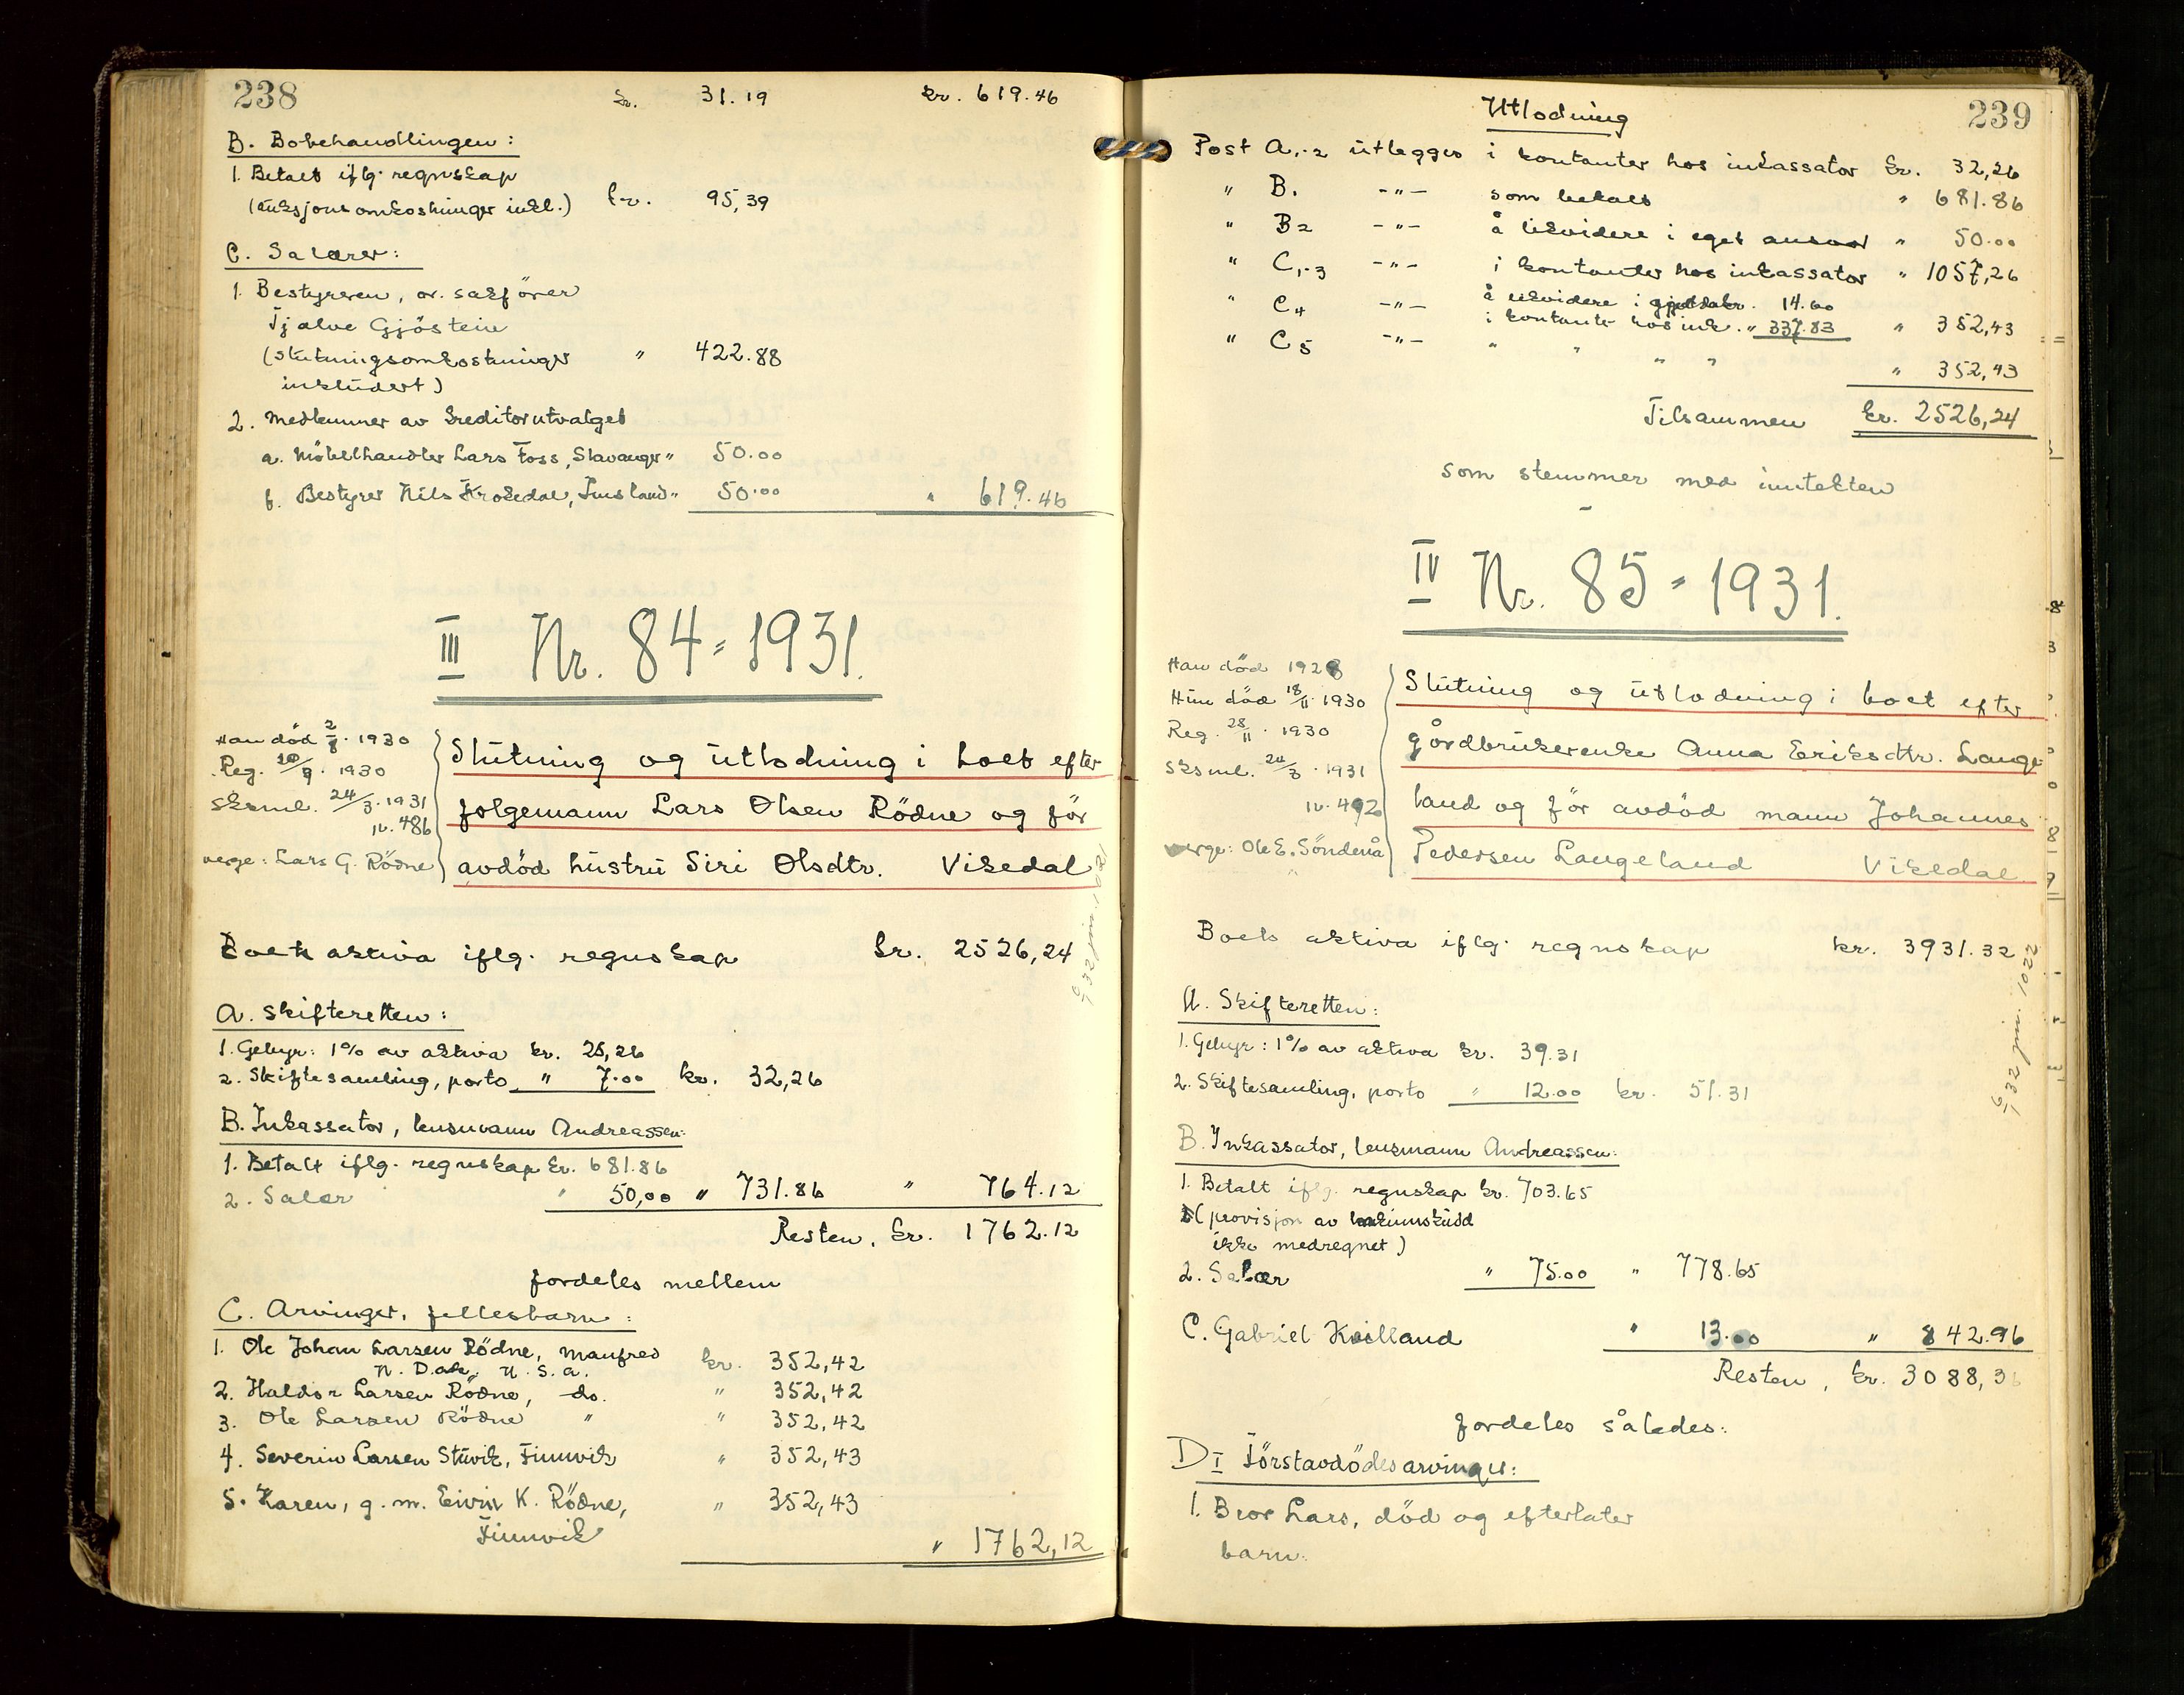 238
kr. 31.19 kr. 619.46
B. Bobehandlingen:
1. Betalt iflg. regnskap
(auksjonsomkostninger inkl.) kr. 95,39
C. Salærer:
1. Bestyreren, o.r. sakförer
Tjalve Gjöstein
(slutningsomkostninger " 422.88
inkludert)
2. Medlemmer av kreditorutvalget
a. Möbelhandler Lars Foss, Stavanger " 50.00
b. Bestyrer Nils Krokedal, Imsland " 50.00 " 619.46
III Nr. 84 = 1931.
Han död 2/8. 1930
Reg. 20/9. 1930
Sksml. 24/3. 1931
IV. 486
verge: Lars G. Rödne
Slutning og utlodning i boet efter
folgemann Lars Olsen Rödne og för
avdöd hustru Siri Olsdtr. Vikedal
Boets aktiva iflg. regnskap kr. 2526,24
A. Skifteretten:
1. Gebyr: 1% av aktiva kr. 25,26
2. Skiftesamling, porto " 7.00 kr. 32,26
B. Inkassator, lensmann Andreassen:
1. Betalt iflg. regnskap kr. 681.86
2. Salær " 50,00 " 731.86 " 764.12
Resten, kr. 1762.12
fordeles mellem
C. Arvinger, fellesbarn:
1. Ole Johan Larsen Rödne, Manfred kr. 352,42
N. Dak., U.S.A.
2. Haldor Larsen Rödne, do. " 352,42
3. Ole Larsen Rödne " " 352,42
4. Severin Larsen Stuvik, Imsvik " 352,43
5. Karen, g.m. Eivin K. Rödne, " 352,43
Imsvik
" 1762,12
239
Utlodning
Post A,1-2 utlegges i kontanter hos inkassator kr. 32,26
" B1 -"- som betalt " 681.86
" B2 -"- å likvidere i eget ansvar " 50.00
" C1-3 -"- i kontanter hos inkassator " 1057,26
" C4 -"- å likvidere i gjeld kr. 14.60
i kontanter hos ink. " 337.83 " 352,43
" C5 -"- " " " " " 352,43
Tilsammen kr. 2526,24
som stemmer med inntekten
IV Nr. 85 = 1931.
Han död 1928
Hun död 18/11. 1930
Reg. 28/11. 1930
Sksml. 24/3. 1931
IV. 492
verge: Ole E. Söndenå
Slutning og utlodning i boet efter
gårdbrukerenke Anna Eriksdtr. Lange-
land og för avdöd mann Johannes
Pedersen Langeland Vikedal
Boets aktiva iflg. regnskap kr. 3931.32
A. Skifteretten:
1. Gebyr: 1% av aktiva kr. 39.31
2. Skiftesamling, porto " 12.00 kr. 51.31
B. Inkassator, lensmann Andreassen:
1. Betalt iflg. regnskap kr. 703.65
(provisjon av
ikke medregnet)
2. Salær " 75.00 " 778.65
C. Gabriel Kvilland " 13.00 " 842.96
Resten, kr. 3088,36
fordeles således:
D I Förstavdödes arvinger:
1. Bror Lars, död og efterlater
barn: